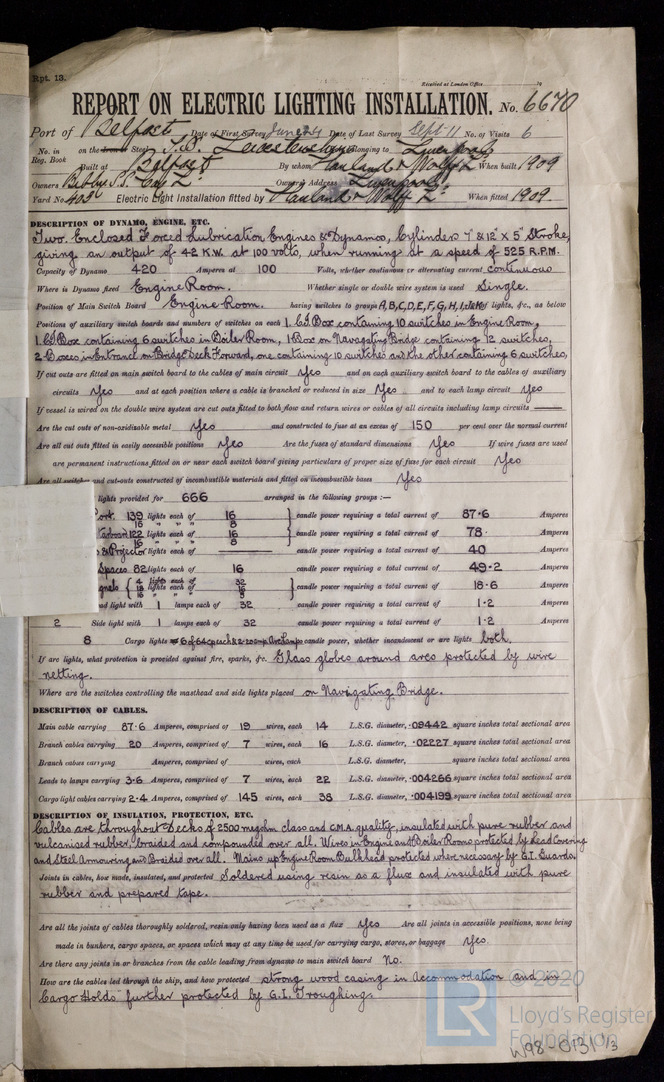 Rpt. 13.
Received at London Office 19
REPORT ON ELECTRIC LIGHTING INSTALLATION. No. 6670
Port of Belfast Date of First Survey June 24 Date of Last Survey Sept 11 No. of Visits 6
No. in Reg. Book on the Iron or Steel S.S. Leicestershire Belonging to Liverpool
Built at Belfast By whom Harland & Wolff Ld When built 1909
Owners Bibby S.S. Coy Ld Owners' Address Liverpool
Yard No. 403 Electric Light Installation fitted by Harland & Wolff Ld When fitted 1909.
DESCRIPTION OF DYNAMO, ENGINE, ETC.
Two. Enclosed Forced Lubrication Engines & Dynamos, Cylinders 7" & 12" x 5" Stroke,
giving an output of 42 K.W. at 100 volts, when running at a speed of 525 R.P.M.
Capacity of Dynamo 420 Amperes at 100 Volts, whether continuous or alternating current continuous
Where is Dynamo fixed Engine Room. Whether single or double wire system is used Single.
Position of Main Switch Board Engine Room. having switches to groups A, B, C, D, E, F, G, H, I, J & K of lights, &c., as below
Positions of auxiliary switch boards and numbers of switches on each 1. C.I. Box containing 10 switches in Engine Room,
1. C.I. Box containing 6 switches in Boiler Room, 1 Box on Navigating Bridge containing 12 switches,
2 Boxes in Entrance on Bridge Deck Forward, one containing 10 switches and the other containing 6 switches,
If cut outs are fitted on main switch board to the cables of main circuit Yes and on each auxiliary switch board to the cables of auxiliary
circuits Yes and at each position where a cable is branched or reduced in size Yes and to each lamp circuit Yes
If vessel is wired on the double wire system are cut outs fitted to both flow and return wires or cables of all circuits including lamp circuits
Are the cut outs of non-oxidizable metal Yes and constructed to fuse at an excess of 150 per cent over the normal current
Are all cut outs fitted in easily accessible positions Yes Are the fuses of standard dimensions Yes If wire fuses are used
are permanent instructions fitted on or near each switch board giving particulars of proper size of fuse for each circuit Yes
Are all switches and cut-outs constructed of incombustible materials and fitted on incombustible bases Yes
lights provided for 666 arranged in the following groups :—
Port. 139 lights each of 16 } candle power requiring a total current of 87.6 Amperes
16 " " " 8
122 lights each of 16 } candle power requiring a total current of 78. Amperes
16 " " " 8
& Projector lights each of candle power requiring a total current of 40 Amperes
Spaces 82 lights each of 16 candle power requiring a total current of 49.2 Amperes
{ 4 lights each of 32 } candle power requiring a total current of 18.6 Amperes
lights each of 16
16 " " " 8
ad light with 1 lamps each of 32 candle power requiring a total current of 1.2 Amperes
2 Side light with 1 lamps each of 32 candle power requiring a total current of 1.2 Amperes
8 Cargo lights of 6 of 64 cp each & 2 Arc Lamps candle power, whether incandescent or arc lights both.
If arc lights, what protection is provided against fire, sparks, &c. Glass globes around arcs protected by wire
netting.
Where are the switches controlling the masthead and side lights placed on Navigating Bridge.
DESCRIPTION OF CABLES.
Main cable carrying 87.6 Amperes, comprised of 19 wires, each 14 L.S.G. diameter, .09442 square inches total sectional area
Branch cables carrying 20 Amperes, comprised of 7 wires, each 16 L.S.G. diameter, .02227 square inches total sectional area
Branch cables carrying Amperes, comprised of wires, each L.S.G. diameter, square inches total sectional area
Leads to lamps carrying 3.6 Amperes, comprised of 7 wires, each 22 L.S.G. diameter, .004266 square inches total sectional area
Cargo light cables carrying 2.4 Amperes, comprised of 145 wires, each 38 L.S.G. diameter, .004199 square inches total sectional area
DESCRIPTION OF INSULATION, PROTECTION, ETC.
Cables are throughout Decks of 2500 megohm class and C.M.A. quality, insulated with pure rubber and
vulcanised rubber, braided and compounded over all. Wires in Engine and Boiler Rooms protected by Lead Covering
and Steel Armouring and Braided over all. Mains up Engine Room Bulkhead protected where necessary by G.I. Guards.
Joints in cables, how made, insulated, and protected Soldered using resin as a flux and insulated with pure
rubber and prepared tape.
Are all the joints of cables thoroughly soldered, resin only having been used as a flux Yes Are all joints in accessible positions, none being
made in bunkers, cargo spaces, or spaces which may at any time be used for carrying cargo, stores, or baggage Yes.
Are there any joints in or branches from the cable leading from dynamo to main switch board No.
How are the cables led through the ship, and how protected strong wood casing in Accommodation and in
"Cargo Holds" further protected by G.I. Troughing.
© 2020
LR
Lloyd's Register
Foundation
W98-0131 1/3